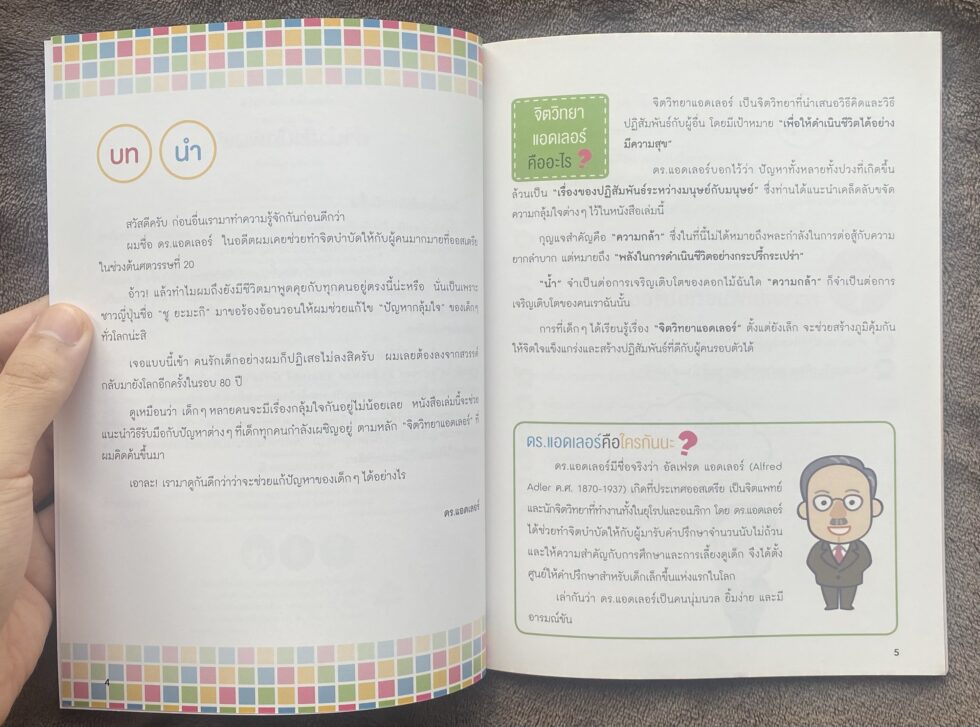 บทนำ
สวัสดีครับ ก่อนอื่นเรามาทำความรู้จักกันก่อนดีกว่า
ผมชื่อ ดร.แอดเลอร์ ในอดีตผมเคยช่วยทำจิตบำบัดให้กับผู้คนมากมายที่ออสเตรีย
ในช่วงต้นศตวรรษที่ 20
อ้าว! แล้วทำไมผมถึงยังมีชีวิตมาพูดคุยกับทุกคนอยู่ตรงนี้น่ะหรือ นั่นเป็นเพราะ
ชาวญี่ปุ่นชื่อ "ชู ยะมะกิ" มาขอร้องอ้อนวอนให้ผมช่วยแก้ไข "ปัญหากลุ้มใจ" ของเด็กๆ
ทั่วโลกน่ะสิ
เจอแบบนี้เข้า คนรักเด็กอย่างผมก็ปฏิเสธไม่ลงสิครับ ผมเลยต้องลงจากสวรรค์
กลับมายังโลกอีกครั้งในรอบ 80 ปี
ดูเหมือนว่า เด็กๆ หลายคนจะมีเรื่องกลุ้มใจกันอยู่ไม่น้อยเลย หนังสือเล่มนี้จะช่วย
แนะนำวิธีรับมือกับปัญหาต่างๆ ที่เด็กทุกคนกำลังเผชิญอยู่ ตามหลัก "จิตวิทยาแอดเลอร์" ที่
ผมคิดค้นขึ้นมา
เอาละ! เรามาดูกันดีกว่าว่าจะช่วยแก้ปัญหาของเด็กๆ ได้อย่างไร
ดร.แอดเลอร์
4
จิตวิทยา
แอดเลอร์
คืออะไร ?
จิตวิทยาแอดเลอร์ เป็นจิตวิทยาที่นำเสนอวิธีคิดและวิธี
ปฏิสัมพันธ์กับผู้อื่น โดยมีเป้าหมาย "เพื่อให้ดำเนินชีวิตได้อย่าง
มีความสุข"
ดร.แอดเลอร์บอกไว้ว่า ปัญหาทั้งหลายทั้งปวงที่เกิดขึ้น
ล้วนเป็น "เรื่องของปฏิสัมพันธ์ระหว่างมนุษย์กับมนุษย์" ซึ่งท่านได้แนะนำเคล็ดลับขจัด
ความกลุ้มใจต่างๆ ไว้ในหนังสือเล่มนี้
กุญแจสำคัญคือ "ความกล้า" ซึ่งในที่นี้ไม่ได้หมายถึงพละกำลังในการต่อสู้กับความ
ยากลำบาก แต่หมายถึง "พลังในการดำเนินชีวิตอย่างกระปรี้กระเปร่า"
"น้ำ" จำเป็นต่อการเจริญเติบโตของดอกไม้ฉันใด "ความกล้า" ก็จำเป็นต่อการ
เจริญเติบโตของคนเราฉันนั้น
การที่เด็กๆ ได้เรียนรู้เรื่อง "จิตวิทยาแอดเลอร์" ตั้งแต่ยังเล็ก จะช่วยสร้างภูมิคุ้มกัน
ให้จิตใจแข็งแกร่งและสร้างปฏิสัมพันธ์ที่ดีกับผู้คนรอบตัวได้
ดร.แอดเลอร์คือใครกันนะ ?
ดร.แอดเลอร์มีชื่อจริงว่า อัลเฟรด แอดเลอร์ (Alfred
Adler ค.ศ. 1870-1937) เกิดที่ประเทศออสเตรีย เป็นจิตแพทย์
และนักจิตวิทยาที่ทำงานทั้งในยุโรปและอเมริกา โดย ดร.แอดเลอร์
ได้ช่วยทำจิตบำบัดให้กับผู้มารับคำปรึกษาจำนวนนับไม่ถ้วน
และให้ความสำคัญกับการศึกษาและการเลี้ยงดูเด็ก จึงได้ตั้ง
ศูนย์ให้คำปรึกษาสำหรับเด็กเล็กขึ้นแห่งแรกในโลก
เล่ากันว่า ดร.แอดเลอร์เป็นคนนุ่มนวล ยิ้มง่าย และมี
อารมณ์ขัน
5